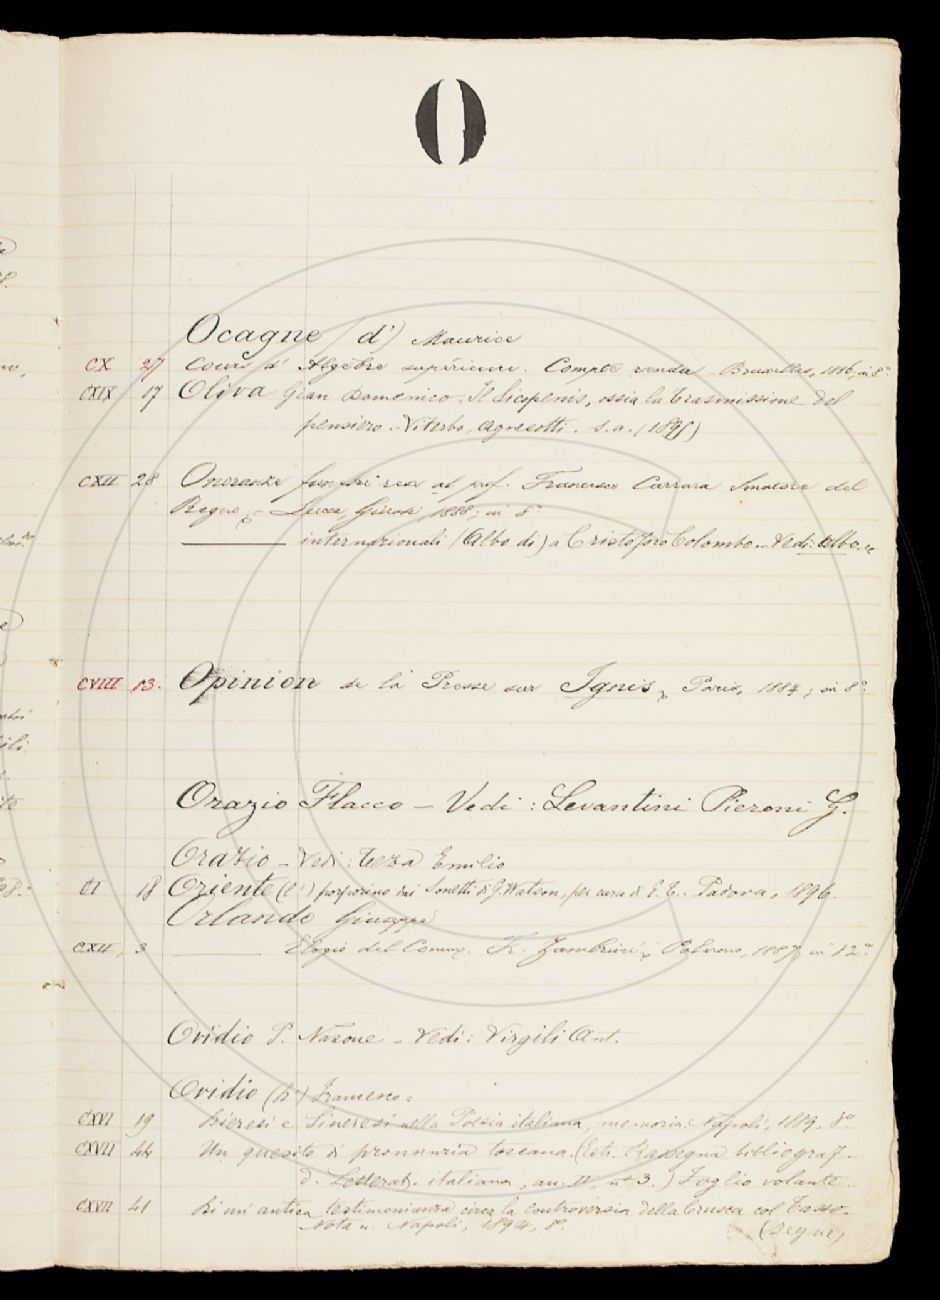 O
Ocagne (d') Maurice
CX 27 Cours d'Algèbre supérieure. Compte rendu - Bruxelles, 1886, in 8°
CXIX 17 Oliva Gian Domenico. Il ossia la trasmissione del
pensiero. - Viterbo, Agnesotti. s.a. (1895)
CXII 28 Onoranze funebri rese al prof. Francesco Carrara Senatore del
Regno; - Lucca, Giusti, 1888; in 8°
——— internazionali (Albo di) a Cristoforo Colombo. - Vedi: Albo. ec
CVIII 13. Opinion de la Presse sur Ignis; Paris, 1884; in 8°
Orazio Flacco - Vedi: Levantini Pieroni G.
Orazio - Vedi: Teza Emilio
CI 18 Oriente (L') porporino dai Sonetti di G. Watson, per cura di E. T. Padova, 1896.
Orlando Giuseppe
CXII, 3 ——— Elogio del Comm. F. Zambrini; Palermo, 1887, in 12°
Ovidio P. Nasone - Vedi: Virgili Ant.
Ovidio (D') Francesco =
CXVI 19 Dieresi e Sineresi nella Poesia italiana, memoria. Napoli, 1889. 8°
CXVII 44 Un quesito di pronunzia toscana. (Estr. Rassegna bibliograf.
d. Letterat. italiana, an. II, n° 3.) Foglio volante.
CXVII 41 Di un' antica testimonianza circa la controversia della Crusca col Tasso.
Nota. Napoli, 1894, 8°
(segue)